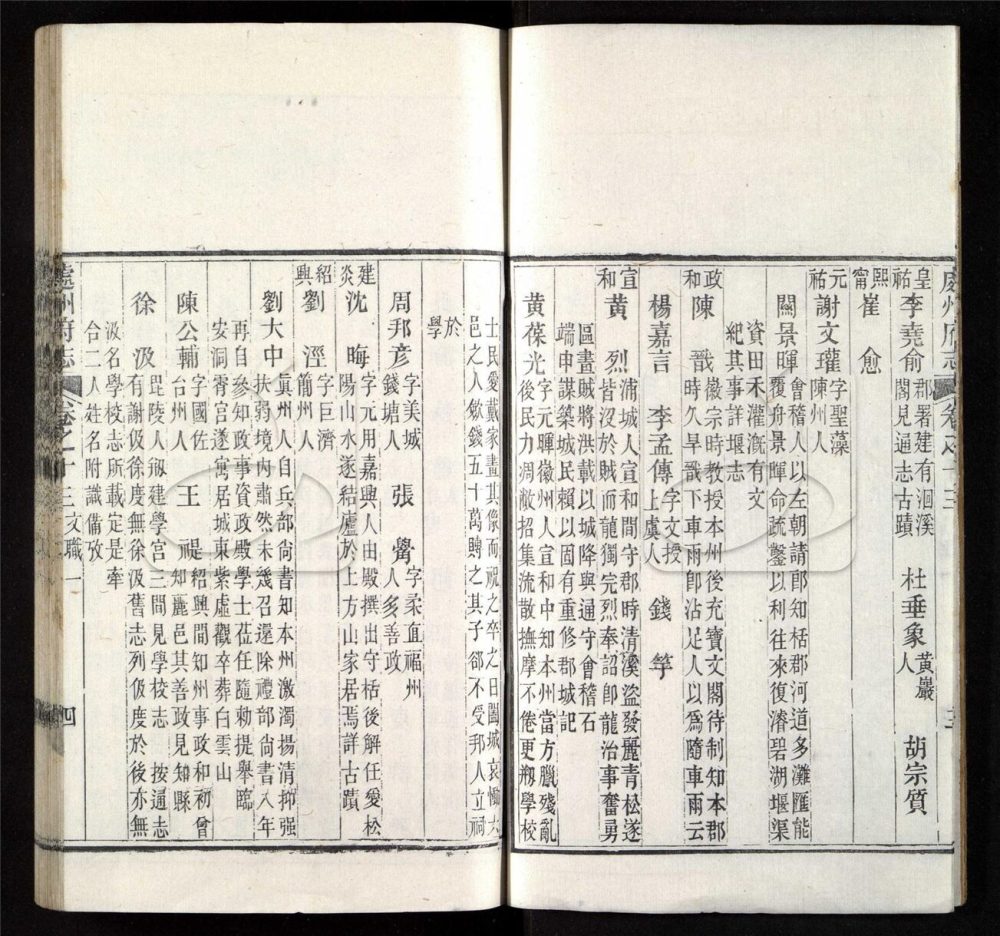 處州府志 卷之十三
皇祐 李堯俞 郡署建有洄溪閣見通志古蹟 杜垂象 黃巖人 胡宗質
熙甯 崔愈
元祐 謝文瓘 字聖藻陳州人
關景暉 會稽人以左朝請郎知栝郡河道多灘匯能覆舟景暉命疏鑿以利往來復濬碧湖堰渠
資田禾灌漑有文紀其事詳堰志
政和 陳戩 徽宗時教授本州後充寶文閣待制知本郡時久旱戩下車雨卽沾足人以爲隨車雨云
楊嘉言 李孟傳 字文授上虞人 錢竽
宣和 黃烈 浦城人宣和間守郡時淸溪盜發麗靑松遂皆沒於賊而龍獨完烈奉詔卽龍治事奮勇
區畫賊將洪載以城降與通守會稽石端申謀築城民賴以固有重修郡城記
黃葆光 字元暉徽州人宣和中知本州當方臘殘亂後民力凋敝招集流散撫摩不倦更剏學校
士民愛戴家畫其像而祝之卒之日闔城哀慟大邑之人歛錢五十萬賻之其子郤不受邦人立祠
於學
周邦彥 字美城錢塘人 張觷 字柔直福州人多善政
建炎 沈晦 字元用嘉興人由殿撰出守栝後解任愛松陽山水遂結廬於上方山家居焉詳古蹟
紹興 劉涇 字巨濟簡州人
劉大中 眞州人自兵部尙書知本州激濁揚淸抑强扶弱境內肅然未幾召還除禮部尙書八年
再自參知政事資政殿學士莅任隨勅提舉臨安洞霄宮遂寓居城東紫虛觀卒葬白雲山
陳公輔 字國佐台州人 王禔 紹興間知州事政和初曾知麗邑其善政見知縣
徐汲 毘陵人剏建學宮三間見學校志 按通志有謝伋徐度無徐汲舊志列伋度於後亦無
汲名學校志所載定是牽合二人姓名附識備攷
處州府志 卷之十三 文職一 四